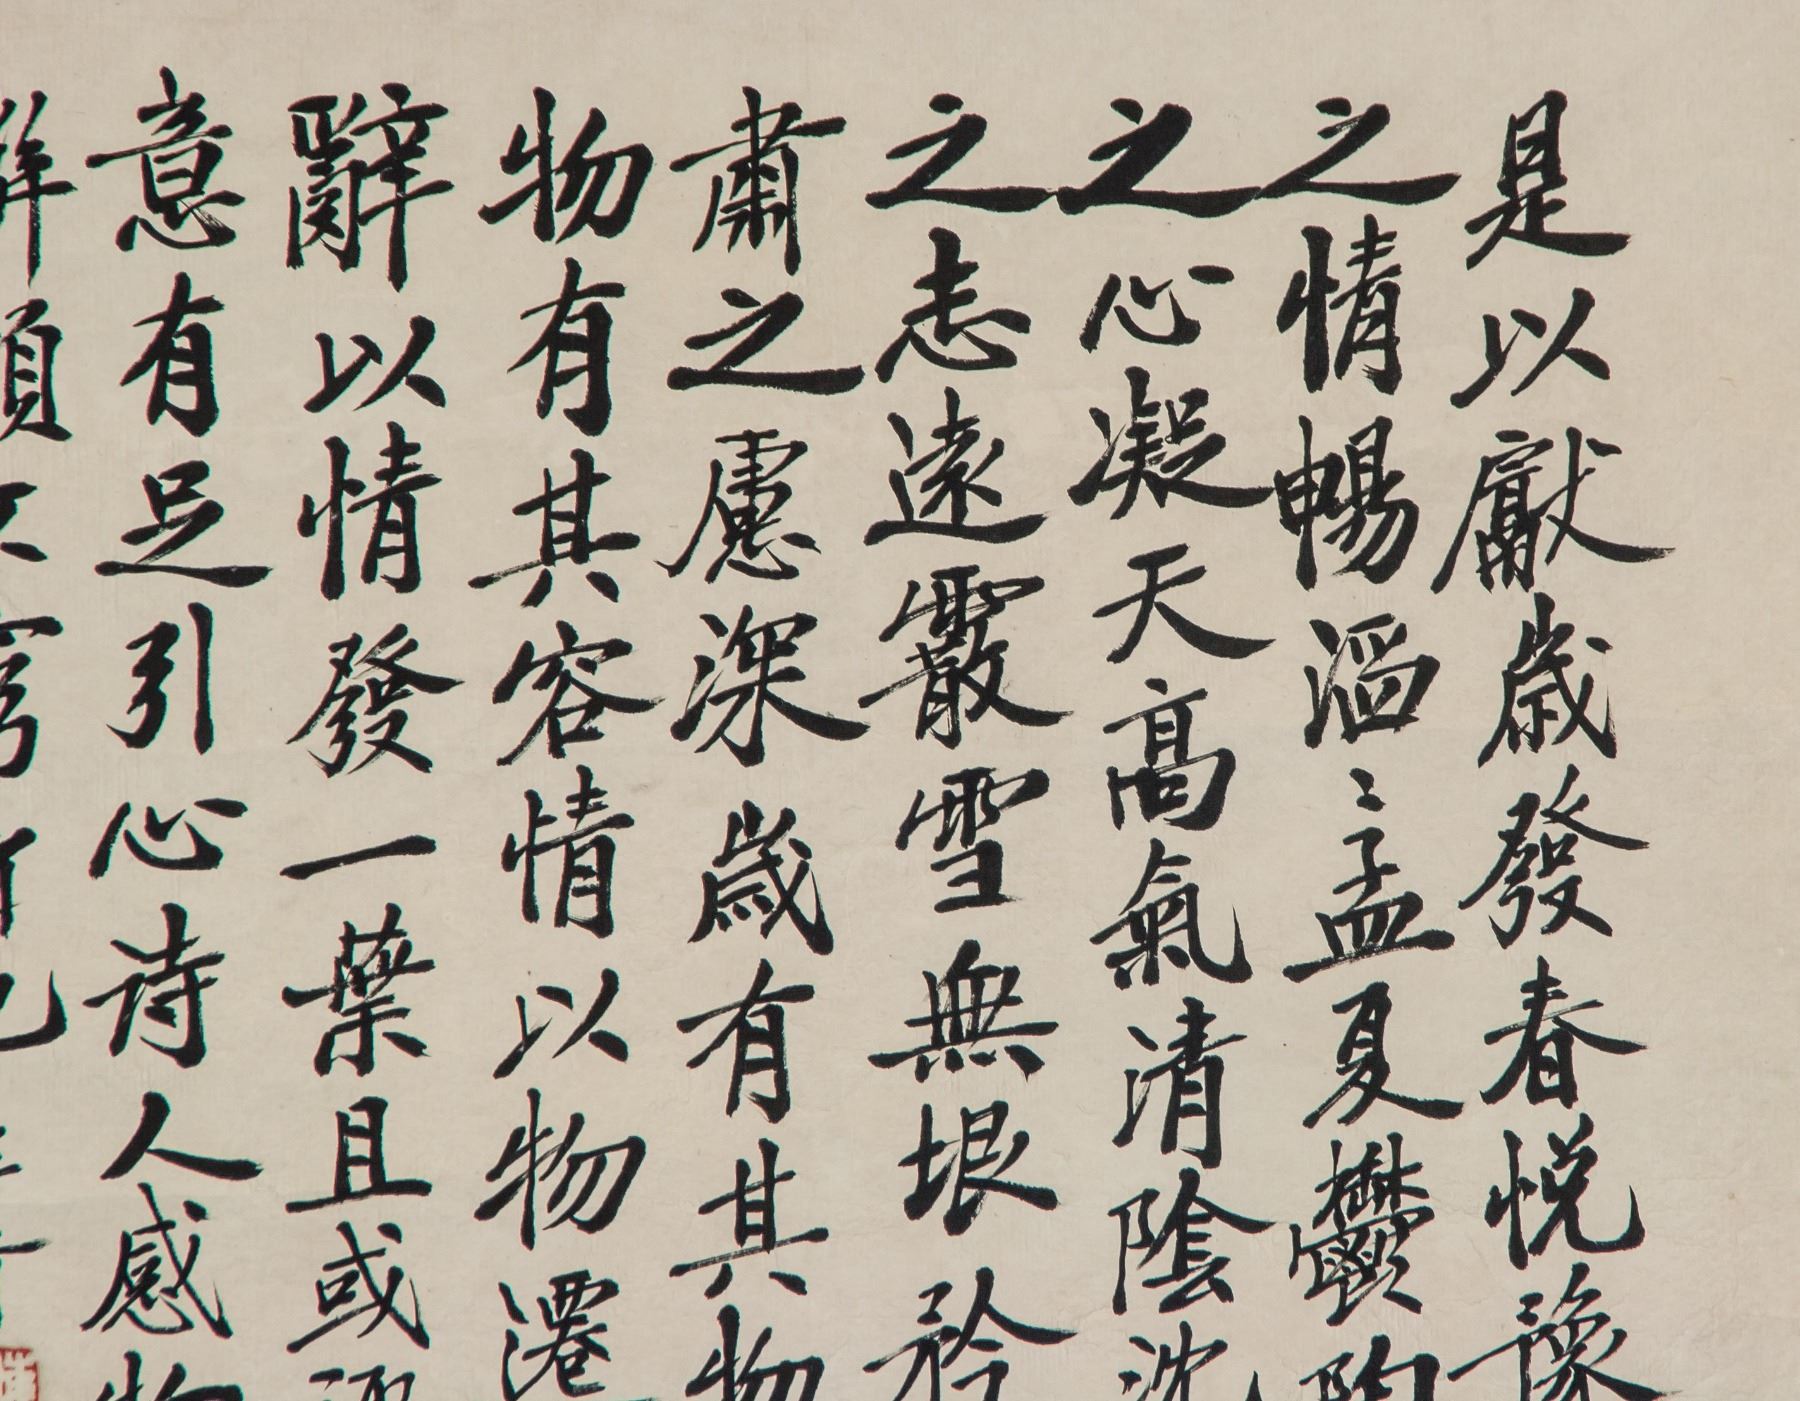 是以獻歲發春悅豫
之情暢滔〻孟夏鬱陶
之心凝天高氣清陰沈
之志遠霰雪無垠矜
肅之慮深歲有其物
物有其容情以物遷
辭以情發一葉且或迎
意有足引心詩人感物